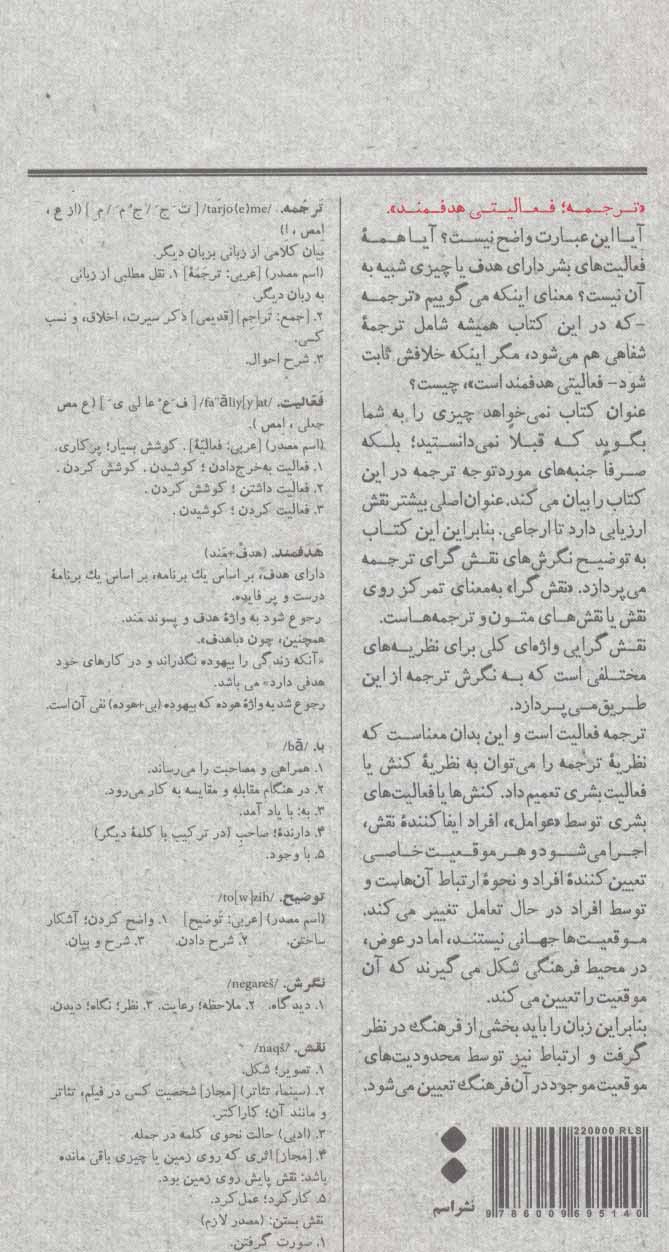 «ترجمه؛ فعالیتی هدفمند».
آیا این عبارت واضح نیست؟ آیا همهٔ
فعالیت‌های بشر دارای هدف یا چیزی شبیه به
آن نیست؟ معنای اینکه می گوییم «ترجمه
–که در این کتاب همیشه شامل ترجمهٔ
شفاهی هم می‌شود، مگر اینکه خلافش ثابت
شود– فعالیتی هدفمند است»، چیست؟
عنوان کتاب نمی‌خواهد چیزی را به شما
بگوید که قبلاً نمی‌دانستید؛ بلکه
صرفاً جنبه‌های موردتوجه ترجمه در این
کتاب را بیان می کند. عنوان اصلی بیشتر نقش
ارزیابی دارد تا ارجاعی. بنابراین این کتاب
به توضیح نگرش‌های نقش گرای ترجمه
می‌پردازد. «نقش گرا» به‌معنای تمرکز روی
نقش یا نقش‌های متون و ترجمه‌هاست.
نقش گرایی واژه‌ای کلی برای نظریه‌های
مختلفی است که به نگرش ترجمه از این
طریق می‌پردازد.
ترجمه فعالیت است و این بدان معناست که
نظریهٔ ترجمه را می‌توان به نظریهٔ کنش یا
فعالیت بشری تعمیم داد. کنش‌ها یا فعالیت‌های
بشری توسط «عوامل»، افراد ایفاکنندهٔ نقش،
اجرا می‌شود و هر موقعیت خاصی
تعیین کنندهٔ افراد و نحوهٔ ارتباط آن‌هاست و
توسط افراد در حال تعامل تغییر می کند.
موقعیت‌ها جهانی نیستند، اما در عوض،
در محیط فرهنگی شکل می گیرند که آن
موقعیت را تعیین می کند.
بنابراین زبان را باید بخشی از فرهنگ در نظر
گرفت و ارتباط نیز توسط محدودیت‌های
موقعیت موجود در آن فرهنگ تعیین می‌شود.
220000 RLS
9786009695140
نشر اسم
تَرجَمه. /tarjo(e)me/ [ تَ جَ / جُ مَ / مِ ] (از ع ،
امص ، ا)
بیان کلامی از زبانی بزبان دیگر.
(اسم مصدر) [عربی: ترجَمَة] ۱. نقل مطلبی از زبانی
به زبان دیگر.
۲. [جمع: تَراجِم] [قدیمی] ذکر سیرت، اخلاق، و نسب
کسی.
۳. شرح احوال.
فَعّالیت. /fa''āliy[y]at/ [ فَ عْ عا لی یَ ] (ع مص
جعلی ، امص ).
(اسم مصدر) [عربی: فعالیّة]. کوشش بسیار؛ پر کاری.
۱. فعالیت به‌خرج‌دادن ؛ کوشیدن . کوشش کردن .
۲. فعالیت داشتن ؛ کوشش کردن .
۳. فعالیت کردن ؛ کوشیدن .
هَدَفمند. (هدف+مَند)
دارای هدف، بر اساس یك برنامه، بر اساس یك برنامهٔ
درست و پر فایده.
رجوع شود به واژهٔ هدف و پسوند مَند.
همچنین، چون «باهدف».
«آنکه زندگی را بیهوده نگذراند و در کارهای خود
هدفی دارد» می باشد.
رجوع شد به واژهٔ هوده که بیهوده (بی+هوده) نفی آن است.
با. /bā/
۱. همراهی و مصاحبت را می‌رساند.
۲. در هنگام مقابله و مقایسه به کار می‌رود.
۳. به: با یاد آمد.
۴. دارندهٔ؛ صاحبِ (در ترکیب با کلمهٔ دیگر)
۵. با وجود.
توضیح. /to[w]zih/
(اسم مصدر) [عربی: تَوضیح] ۱. واضح کردن؛ آشکار
ساختن. ۲. شرح دادن. ۳. شرح و بیان.
نگرش. /negareš/
۱. دیدگاه. ۲. ملاحظه؛ رعایت. ۳. نظر؛ نگاه؛ دیدن.
نقش. /naqš/
۱. تصویر؛ شکل.
۲. (سینما، تئاتر) [مجاز] شخصیت کسی در فیلم، تئاتر
و مانند آن؛ کاراکتر.
۳. (ادبی) حالت نحوی کلمه در جمله.
۴. [مجاز] اثری که روی زمین یا چیزی باقی مانده
باشد: نقش پایش روی زمین بود.
۵. کارکرد؛ عمل کرد.
نقش بستن: (مصدر لازم)
۱. صورت گرفتن.